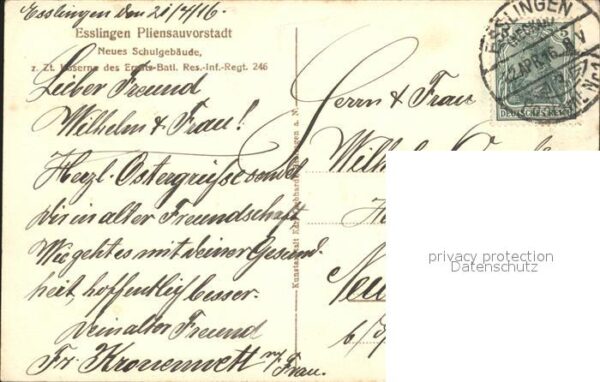 Esslingen den 21/4/16.
Esslingen Pliensauvorstadt
Neues Schulgebäude,
z. Zt. Kaserne des Ersatz-Batl. Res.-Inf.-Regt. 246
Lieber Freund
Wilhelm & Frau!
Herzl. Ostergrüsse sendet
Dir in alter Freundschaft
Wie geht es mit deiner Gesund-
heit, hoffentlich besser.
Dein alter Freund
Fr. Kronenwett u. Frau.
Kunstanstalt Gebhardt Esslingen a. N.
ESSLINGEN
APR. 16
DEUTSCHES REICH
Herrn & Frau
Wilhelm
privacy protection
Datenschutz